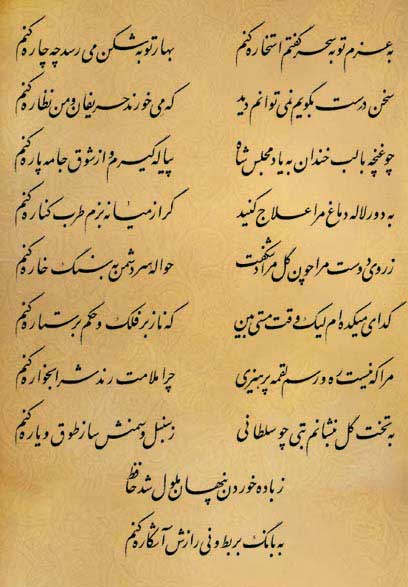 به عزم توبه سحر گفتم استخاره کنم بهار توبه شکن می رسد چه چاره کنم
سخن درست بگویم نمی توانم دید که می خورند حریفان و من نظاره کنم
چو غنچه با لب خندان به یاد مجلس شاه پیاله گیرم و از شوق جامه پاره کنم
به دور لاله دماغ مرا علاج کنید گر از میانه بزم طرب کناره کنم
ز روی دوست مرا چون گل مراد شکفت حواله سر دشمن به سنگ خاره کنم
گدای میکده ام لیک وقت مستی بین که ناز بر فلک و حکم بر ستاره کنم
مرا که نیست ره و رسم لقمه پرهیزی چرا ملامت رند شرابخواره کنم
به تخت گل بنشانم بتی چو سلطانی ز سنبل و سمنش ساز طوق و یاره کنم
ز باده خوردن پنهان ملول شد حافظ
به بانگ بربط و نی رازش آشکاره کنم